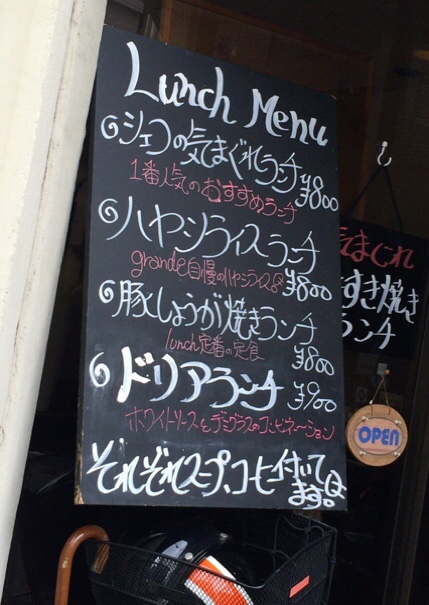 Lunch Menu
シェフの気まぐれランチ ¥800
1番人気のおすすめランチ
ハヤシライスランチ
grande自慢のハヤシライス ¥800
豚しょうが焼きランチ
lunch定番の定食 ¥800
ドリアランチ ¥900
ホワイトソースとデミグラスのコンビネーション
それぞれスープ、コーヒー付いて
ます。
気まぐれ
すき焼き
ランチ
OPEN